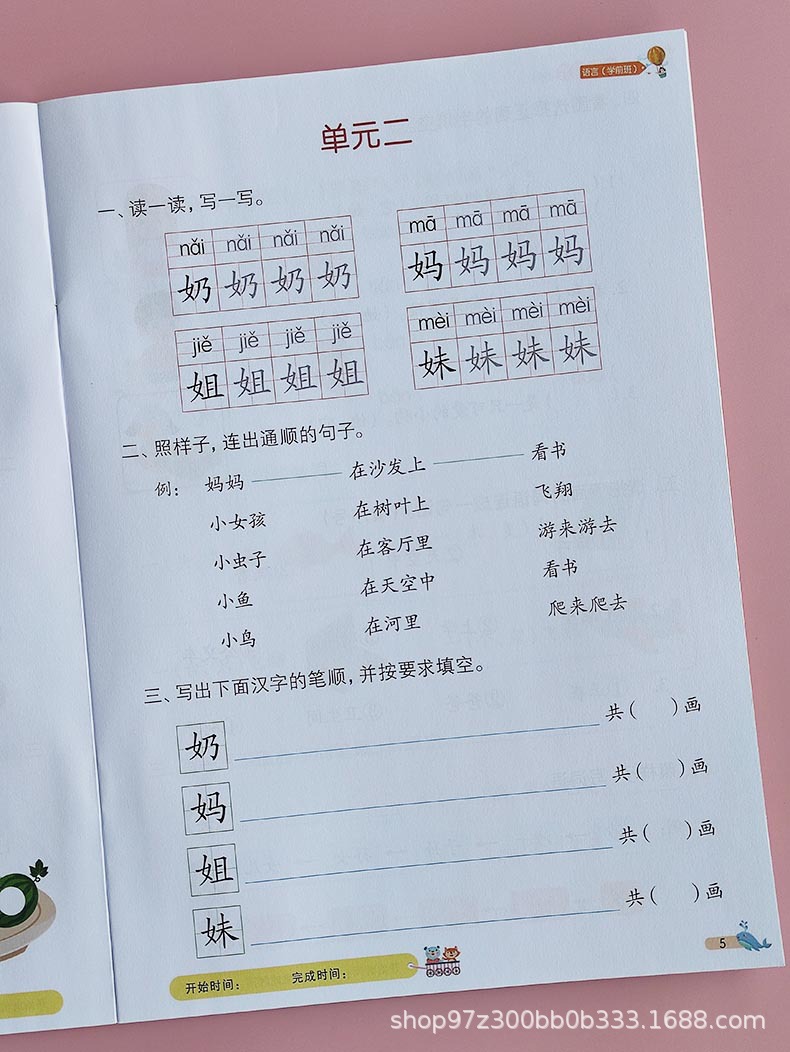 语言(学前班)
单元二
一、读一读,写一写。
nǎi nǎi nǎi nǎi
奶 奶 奶 奶
mā mā mā mā
妈 妈 妈 妈
jiě jiě jiě jiě
姐 姐 姐 姐
mèi mèi mèi mèi
妹 妹 妹 妹
二、照样子,连出通顺的句子。
例: 妈妈 在沙发上 看书
小女孩 在树叶上 飞翔
小虫子 在客厅里 游来游去
小鱼 在天空中 看书
小鸟 在河里 爬来爬去
三、写出下面汉字的笔顺,并按要求填空。
奶 共( )画
妈 共( )画
姐 共( )画
妹 共( )画
开始时间: 完成时间:
5
shop97z300bb0b333.1688.com